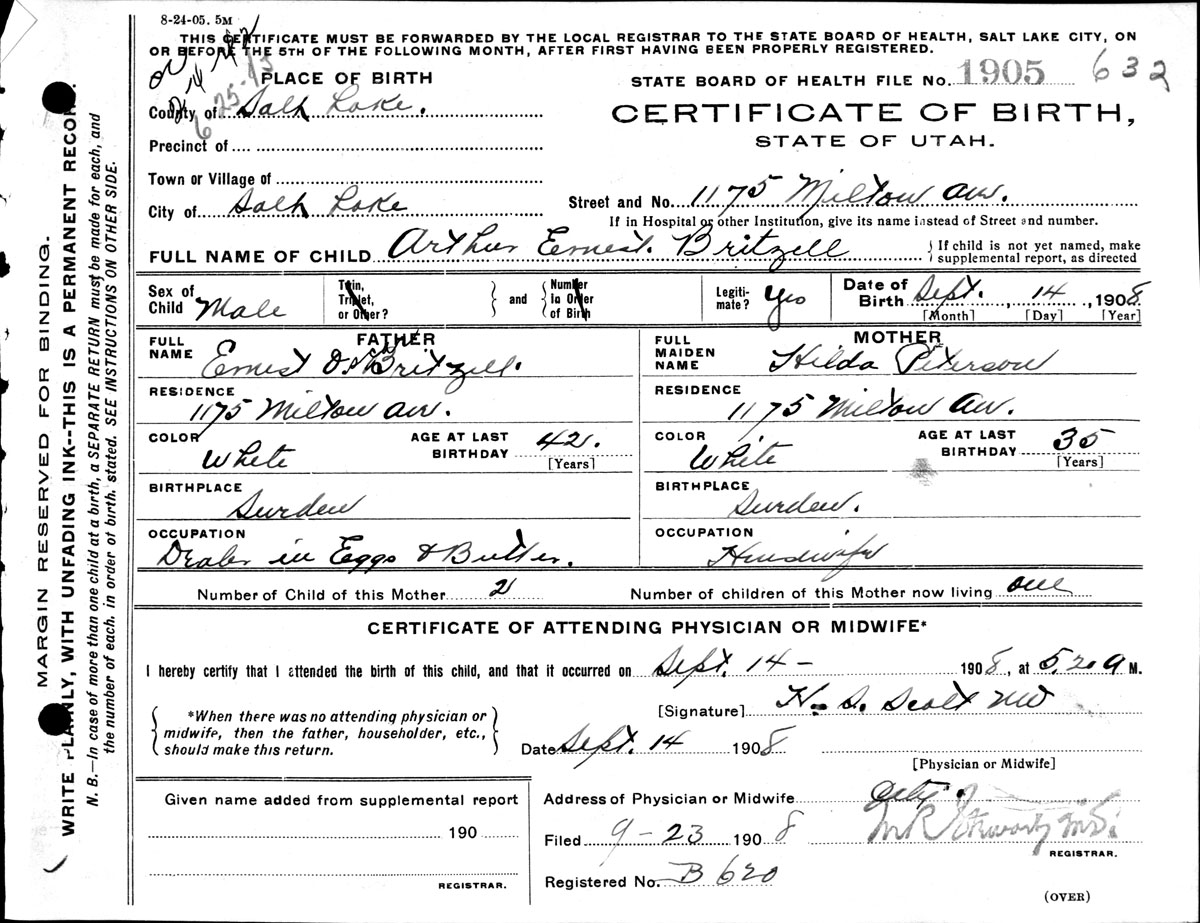 8-24-05. 5M
THIS CERTIFICATE MUST BE FORWARDED BY THE LOCAL REGISTRAR TO THE STATE BOARD OF HEALTH, SALT LAKE CITY, ON
OR BEFORE THE 5TH OF THE FOLLOWING MONTH, AFTER FIRST HAVING BEEN PROPERLY REGISTERED.
PLACE OF BIRTH
STATE BOARD OF HEALTH FILE No. 1905 632
County of Salt Lake.
CERTIFICATE OF BIRTH,
STATE OF UTAH.
Precinct of
Town or Village of
City of Salt Lake
Street and No. 1175 Milton Av.
If in Hospital or other Institution, give its name instead of Street and number.
FULL NAME OF CHILD Arthur Ernest. Britzell
If child is not yet named, make supplemental report, as directed
Sex of Child Male
Twin, Triplet, or Other?
and
Number in Order of Birth
Legitimate? Yes
Date of Birth Sept. 14, 1908
[Month] [Day] [Year]
FATHER
FULL NAME Ernest Britzell.
RESIDENCE
1175 Milton Av.
COLOR White
AGE AT LAST BIRTHDAY 42.
[Years]
BIRTHPLACE
Sweden
OCCUPATION
Dealer in Eggs & Butter.
MOTHER
FULL MAIDEN NAME Hilda Peterson
RESIDENCE
1175 Milton Av.
COLOR White
AGE AT LAST BIRTHDAY 35
[Years]
BIRTHPLACE
Sweden.
OCCUPATION
Housewife
Number of Child of this Mother 2
Number of children of this Mother now living one
CERTIFICATE OF ATTENDING PHYSICIAN OR MIDWIFE*
I hereby certify that I attended the birth of this child, and that it occurred on Sept. 14- 1908, at 5.20 A M.
*When there was no attending physician or
midwife, then the father, householder, etc.,
should make this return.
[Signature] H. S. Scott MD
Date Sept. 14 1908
[Physician or Midwife]
Given name added from supplemental report
190
REGISTRAR.
Address of Physician or Midwife City.
Filed 9-23 1908
REGISTRAR.
Registered No. B 620
(OVER)
MARGIN RESERVED FOR BINDING.
WRITE PLAINLY, WITH UNFADING INK--THIS IS A PERMANENT RECORD.
N. B.—In case of more than one child at a birth, a SEPARATE RETURN must be made for each, and
the number of each, in order of birth, stated. SEE INSTRUCTIONS ON OTHER SIDE.